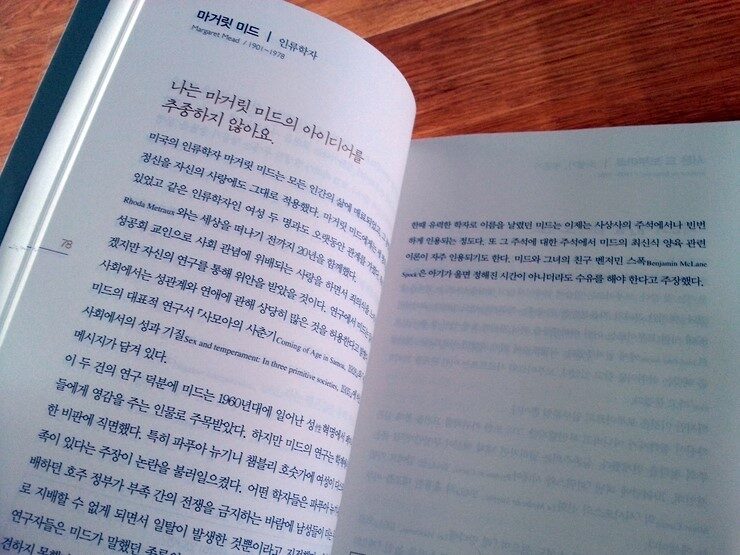 마거릿 미드 | 인류학자
Margaret Mead / 1901~1978
나는 마거릿 미드의 아이디어를
추종하지 않아요.
미국의 인류학자 마거릿 미드는 모든 인간의 삶에 매료되었고, 그
정신을 자신의 사랑에도 그대로 적용했다. 마거릿 미드에게는
있었고 같은 인류학자인 여성 두 명과도 오랫동안 관계를
Rhoda Metraux와는 세상을 떠나기 전까지 20년을 함께했다.
성공회 교인으로 사회 관념에 위배되는 사랑을 하면서
겠지만 자신의 연구를 통해 위안을 받았을 것이다. 연구에서 미드는
사회에서는 성관계와 연애에 관해 상당히 많은 것을 허용한다고
미드의 대표적 연구서 『사모아의 사춘기Coming of Age in Samoa,
사회에서의 성과 기질Sex and temperament: In three primitive societies,
메시지가 담겨 있다.
이 두 건의 연구 덕분에 미드는 1960년대에 일어난 성性혁명에서
들에게 영감을 주는 인물로 주목받았다. 하지만 미드의 연구는
한 비판에 직면했다. 특히 파푸아 뉴기니 챔블리 호숫가에 여성이
족이 있다는 주장이 논란을 불러일으켰다. 어떤 학자들은 파푸아
배하던 호주 정부가 부족 간의 전쟁을 금지하는 바람에 남성들이
로 지배할 수 없게 되면서 일탈이 발생한 것뿐이라고
연구자들은 미드가 말했던
78
한때 유력한 학자로 이름을 날렸던 미드는 이제는 사상사의 주석에서나 빈번
하게 인용되는 정도다. 또 그 주석에 대한 주석에서 미드의 최신식 양육 관련
이론이 자주 인용되기도 한다. 미드와 그녀의 친구 벤저민 스폭Benjamin McLane
Spock은 아기가 울면 정해진 시간이 아니더라도 수유를 해야 한다고 주장했다.